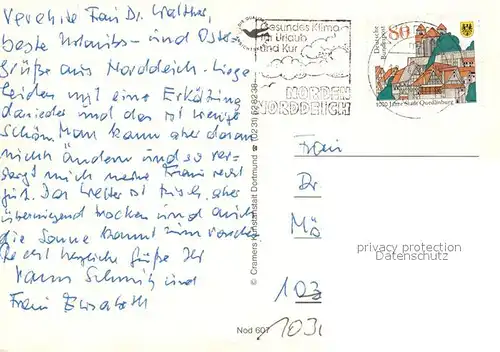 Verehrte Frau Dr. Walther,
beste Urlaubs- und Oster-
grüße aus Norddeich. Liege
leider mit eine Erkältung
darnieder und das ist wenig
schön. Man kann aber daran
nichts ändern und so ver-
sorgt mich meine Frau recht
gut. Das Wetter ist frisch, aber
überwiegend trocken und auch
die Sonne kommt zum Vorschein.
Recht herzliche Grüße Ihr
Schmitz und
Frau Elisabeth
© Cramers Kunstanstalt Dortmund
Nod 607
Gesundes Klima
für Urlaub
und Kur
NORDEN
NORDDEICH
80
Deutsche
Bundespost
1000 Jahre Stadt Quedlinburg
Frau
Dr
Mö
103
1031
privacy protection
Datenschutz